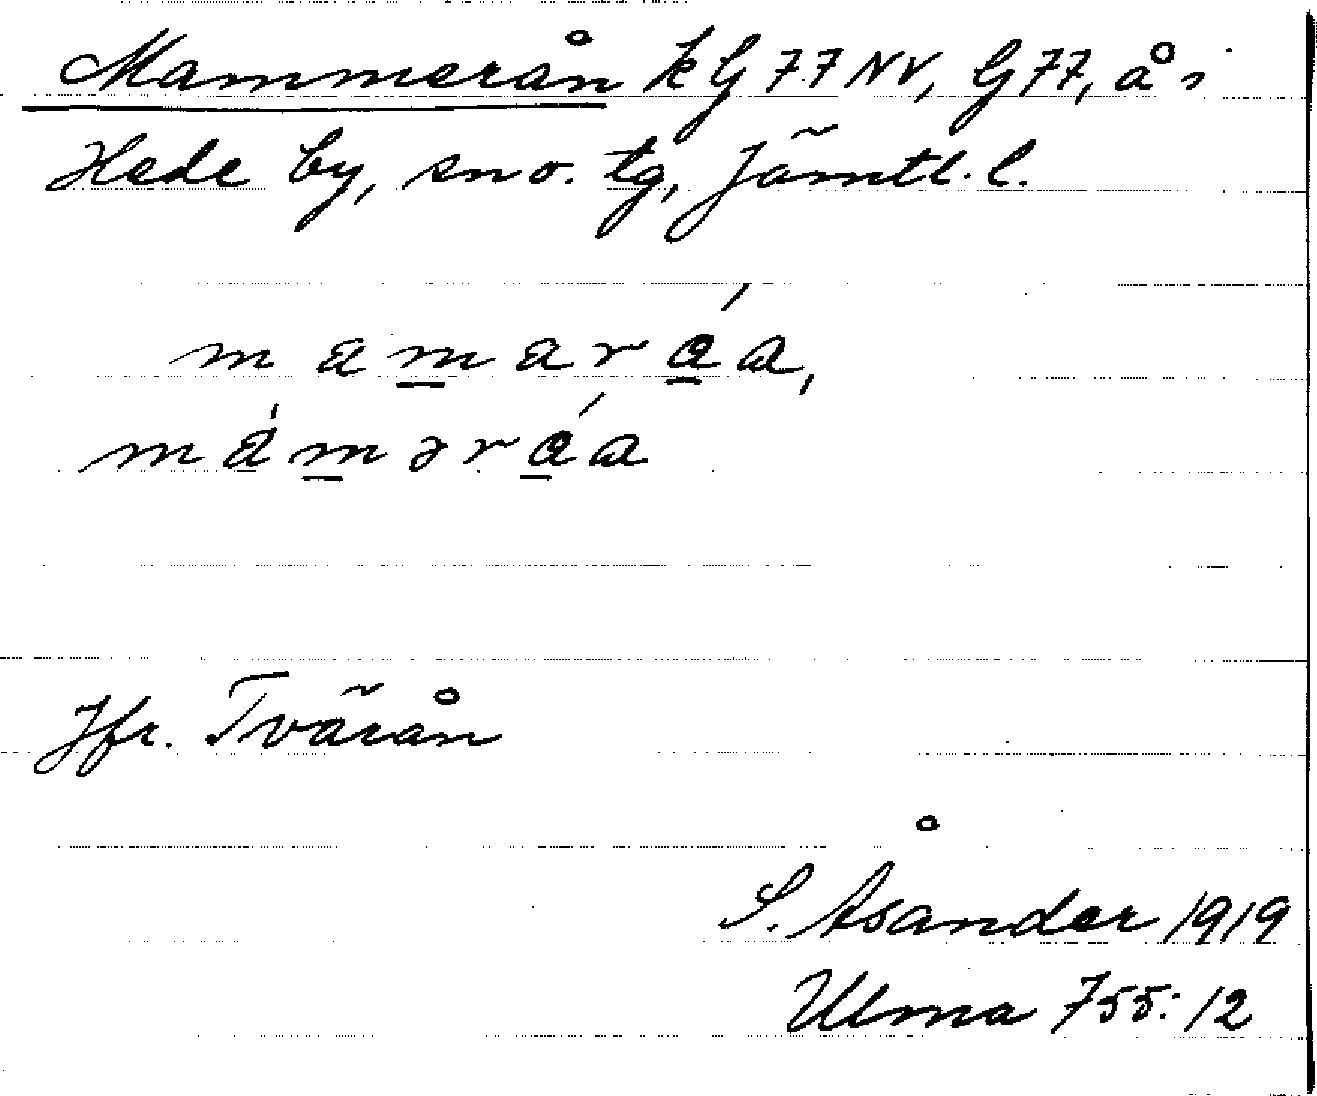 Mammerån kG 77 NV, G 77, å i
Hede by, sn o. tg, Jämtl. l.
mamaráa,
máməráa
Jfr. Tvärån
S. Åsander 1919
Ulma 755:12